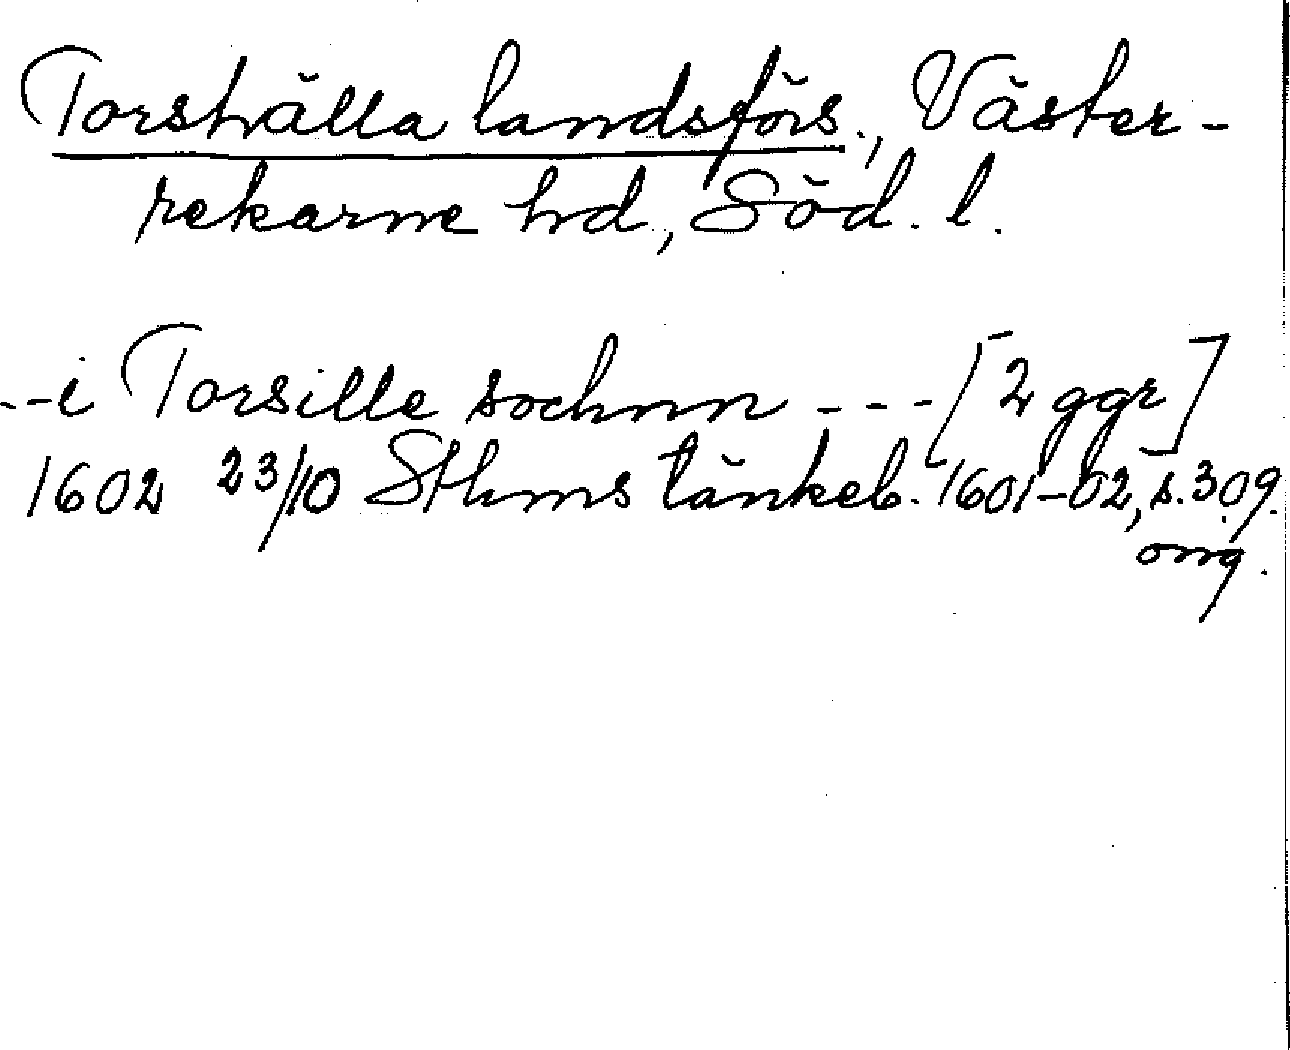 Torshälla landsförs., Väster-
rekarne hd., Söd. l.
--i Torsille sochnn --- [2 ggr]
1602 23/10 Sthms tänkeb. 1601-02, s. 309.
orig.